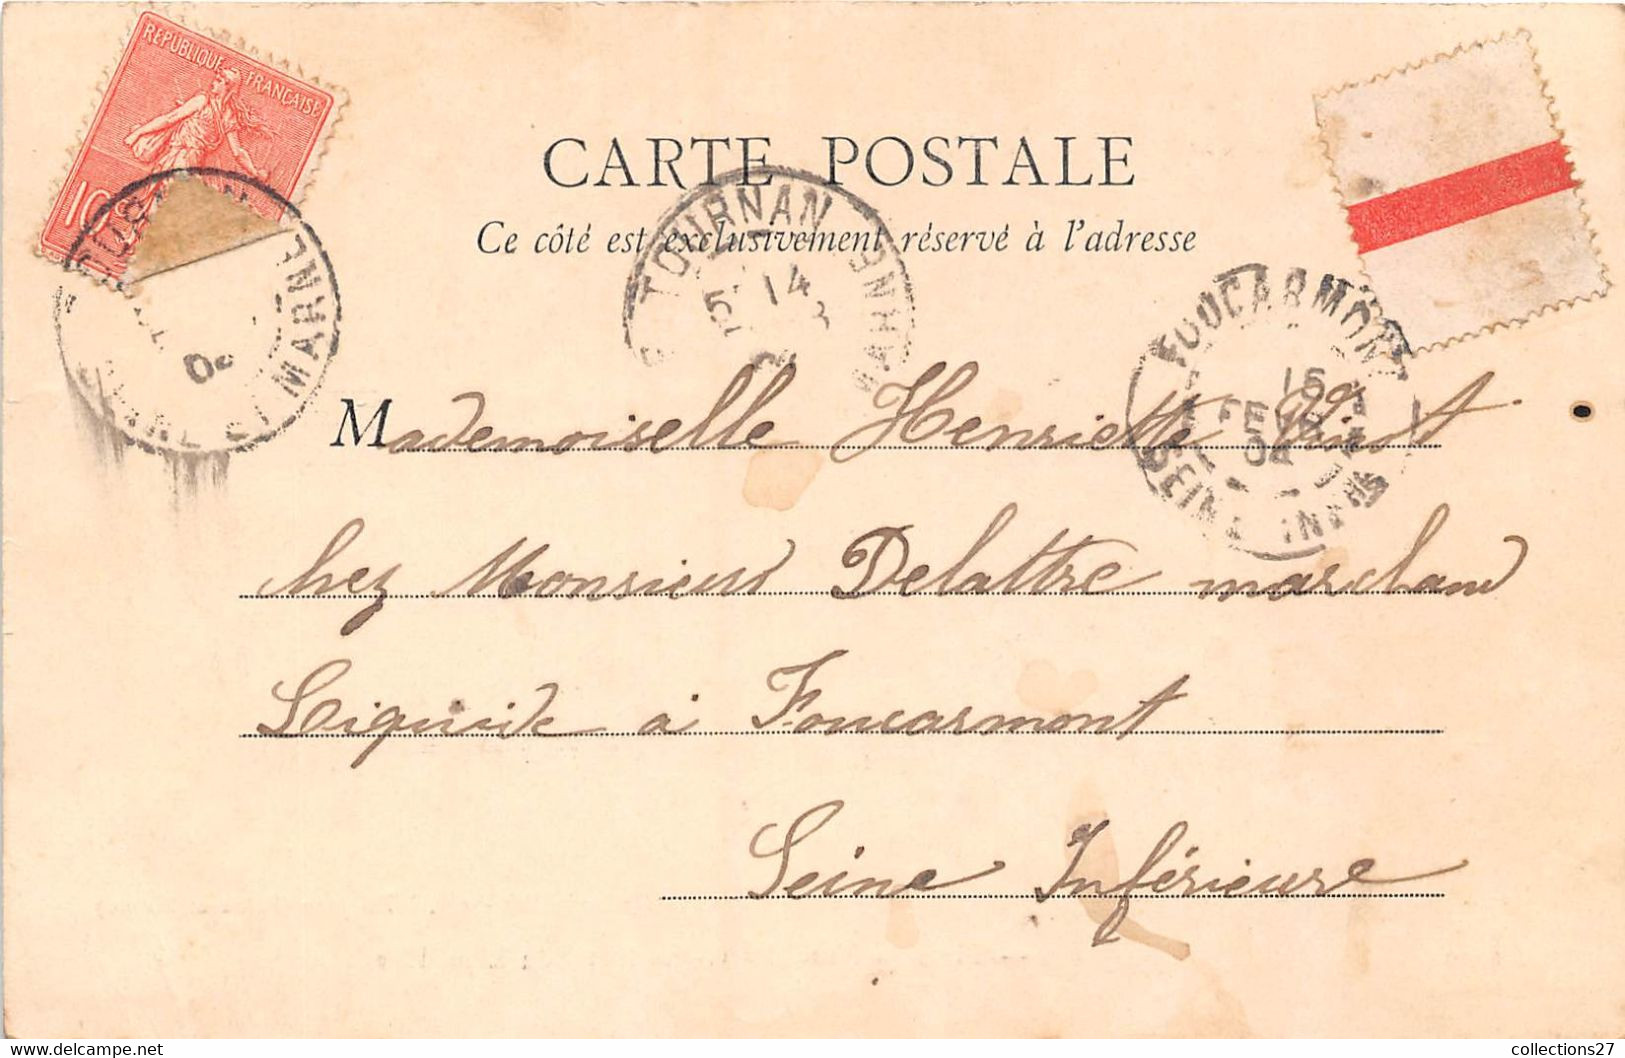 REPUBLIQUE FRANÇAISE
10
CARTE POSTALE
Ce côté est exclusivement réservé à l'adresse
TOURNAN
14
FOUCARMONT
15
FEVR
04
SEINE INFRE
ET MARNE
Mademoiselle Henriette
chez Monsieur Delattre marchand
Liquide à Foucarmont
Seine Inférieure
collections27